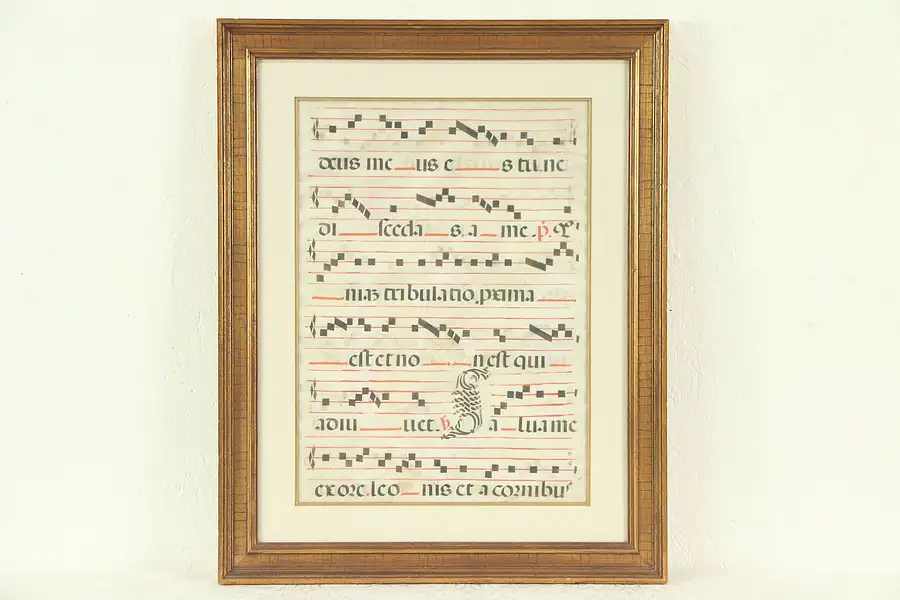 deus me us es tu ne
di sceda s a me . p. Q
niaz tribulatio.pxima
est et no n est qui
adiu uet. v. S a lua me
exore.leo nis et a cornibus